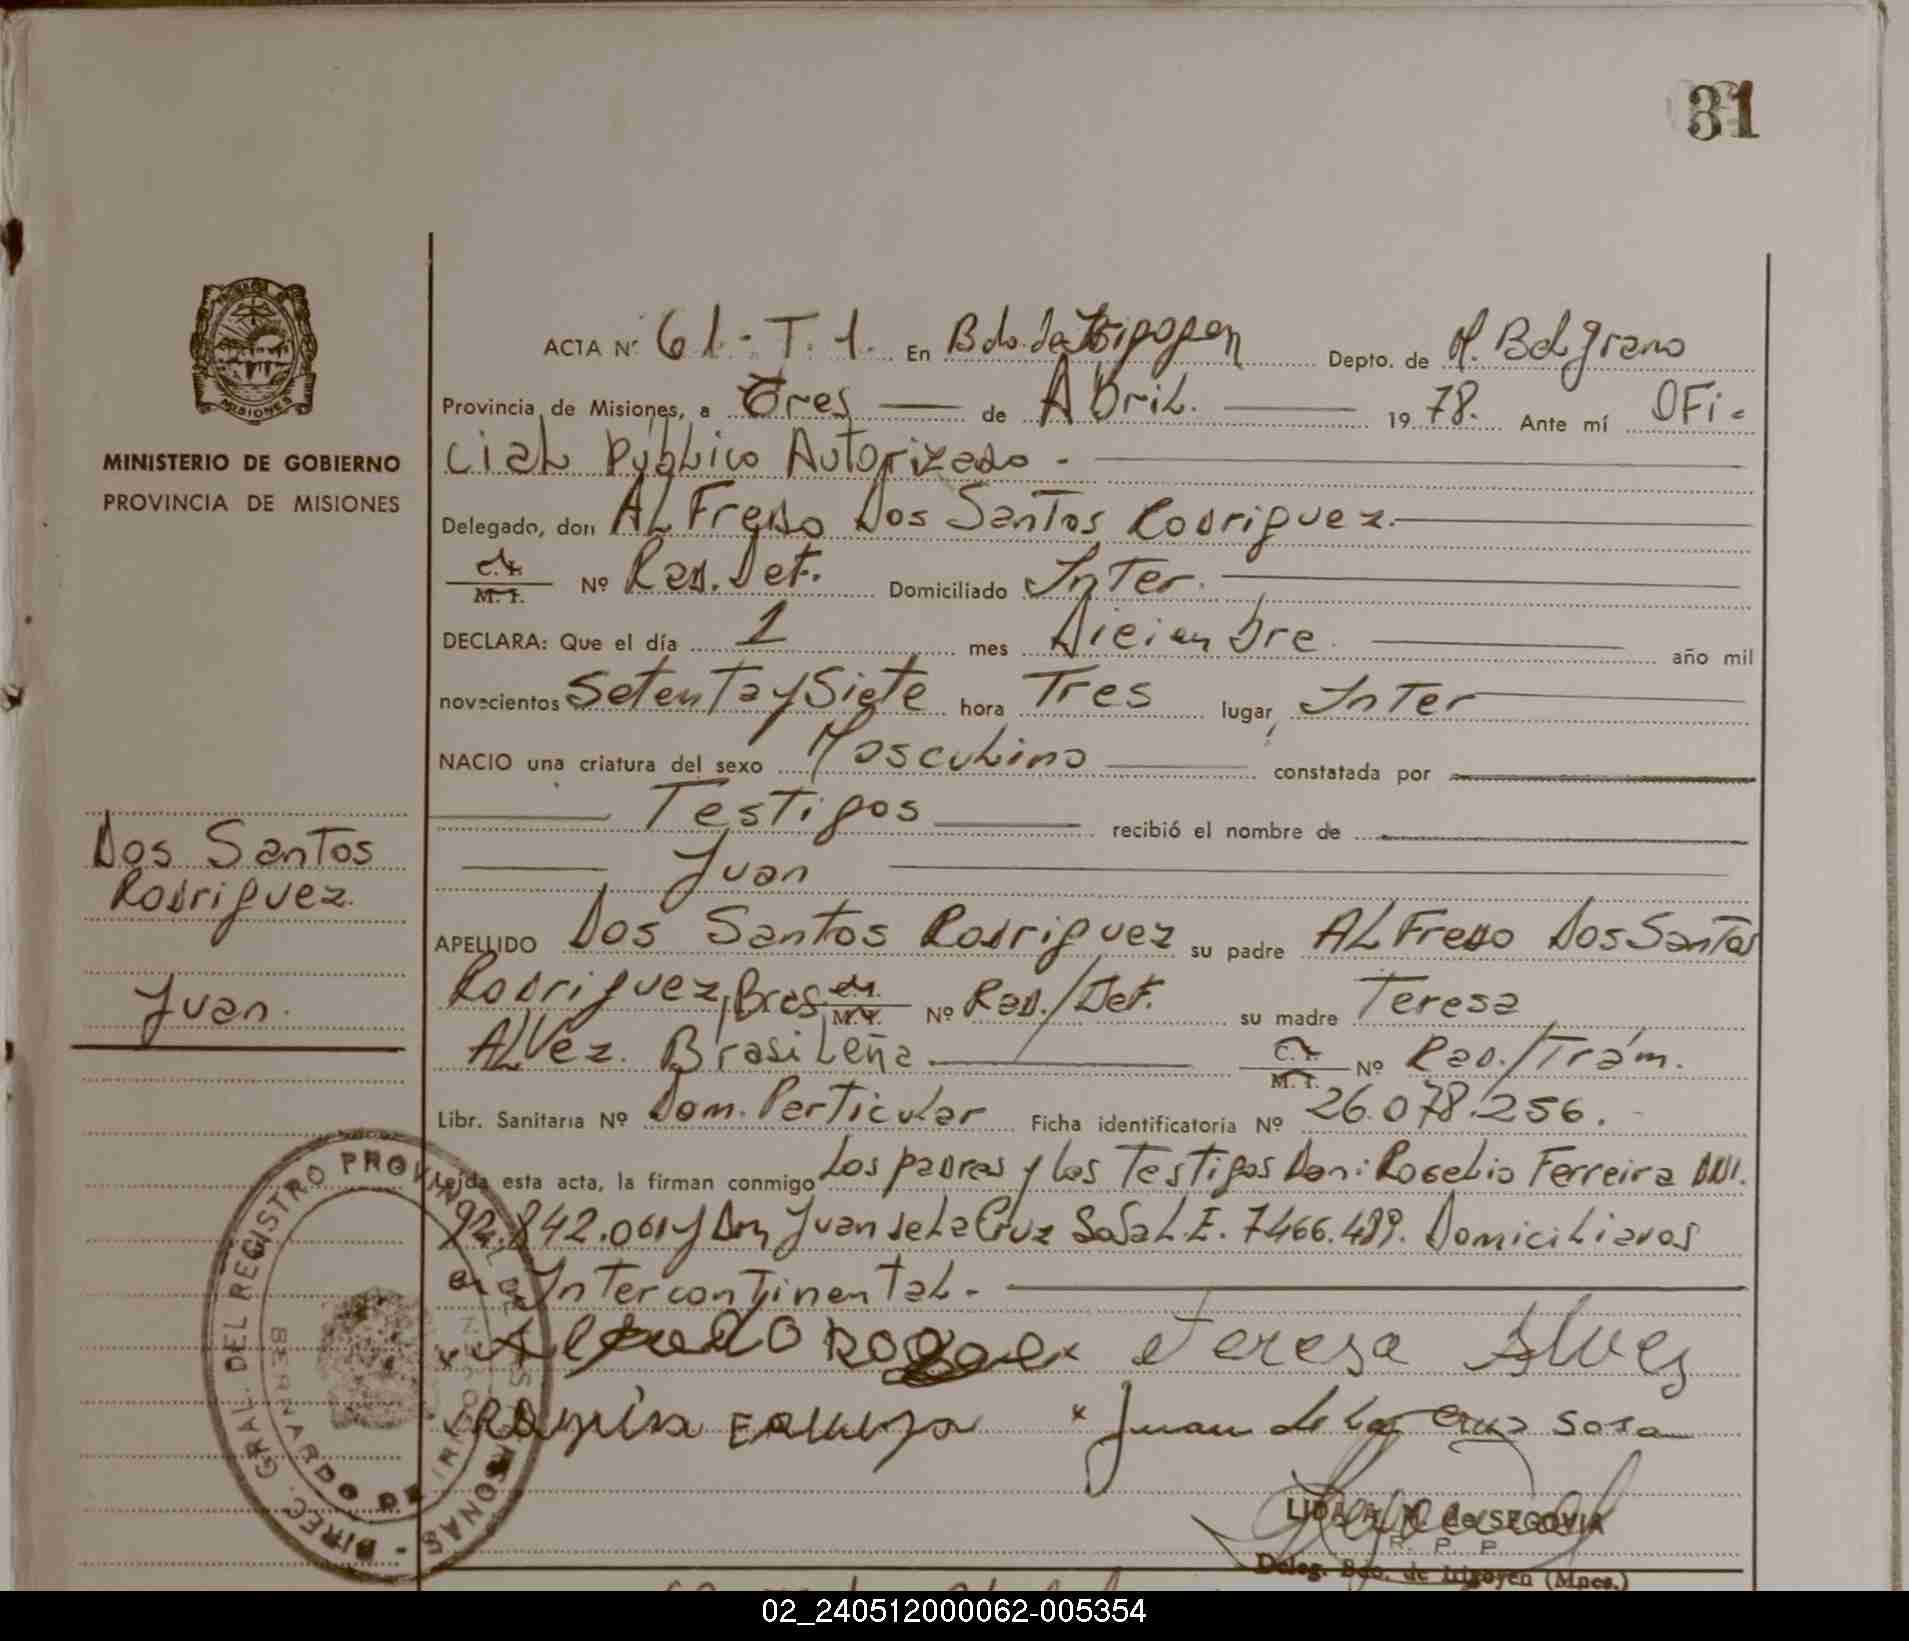 31
MISIONES
MINISTERIO DE GOBIERNO
PROVINCIA DE MISIONES
Dos Santos
Rodriguez.
Juan.
ACTA Nº 61.- T. 1. En Bdo. de Irigoyen Depto. de M. Belgrano
Provincia de Misiones, a Tres de Abril. 1978. Ante mí Ofi-
cial Público Autorizado -
Delegado, don Alfredo Dos Santos Rodriguez.
C. I. M. I. Nº Rad. Det. Domiciliado Inter.
DECLARA: Que el día 1 mes Diciembre año mil
novecientos Setenta y Siete hora Tres lugar, Inter
NACIO una criatura del sexo Masculino constatada por
Testigos recibió el nombre de
Juan
APELLIDO Dos Santos Rodriguez su padre Alfredo Dos Santos
Rodriguez, Bras. C. I. M. I. Nº Rad./Det. su madre Teresa
Alvez. Brasileña C. I. M. I. Nº Rad./Trám.
Libr. Sanitaria Nº Dom. Particular Ficha identificatoria Nº 26.078.256.
Leída esta acta, la firman conmigo Los padres y los Testigos Don: Rogelio Ferreira DNI.
92.842.061 y Don Juan de la Cruz Sosa L.E. 7466.489. Domiciliados
en Intercontinental.-
Alfredo Teresa Alves
Juan de la Cruz Sosa
DIREC. GRAL. DEL REGISTRO PROVINCIAL DE LAS PERSONAS
BERNARDO DE IRIGOYEN
LIDA M. de SEGOVIA
R. P. P.
Deleg. Bdo. de Irigoyen (Mnes.)
02_240512000062-005354